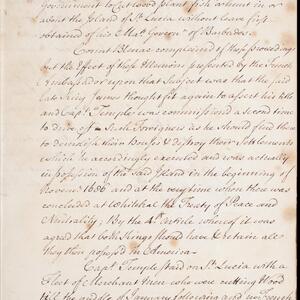 Government to Cut wood plant fish or hunt in or
about the Island of St. Lucia without leave first
obtained of his Majts Governr. of Barbados.
Count Blenac complained of these proceedings
but the Effect of these Memoirs presented by the French
Embassador upon that Subject was that the said
late King James thought fit again to assert his title
and Capt. Temple was commissiond a second time
to drive off Such Foreigners as he should find there
to demolish their Houses & destroy their Settlements
which he accordingly executed and was actually
in possession of the said Island in the beginning of
Novembr 1686 and at the very time when there was
concluded at Whitehal the Treaty of Peace and
Neutrality, By the 4th Article whereof it was
agreed that both Kings should have & retain all
they then possess'd in America
Capt. Temple staid on St. Lucia with a
Fleet of Merchant men who were cutting Wood
till the middle of January following and